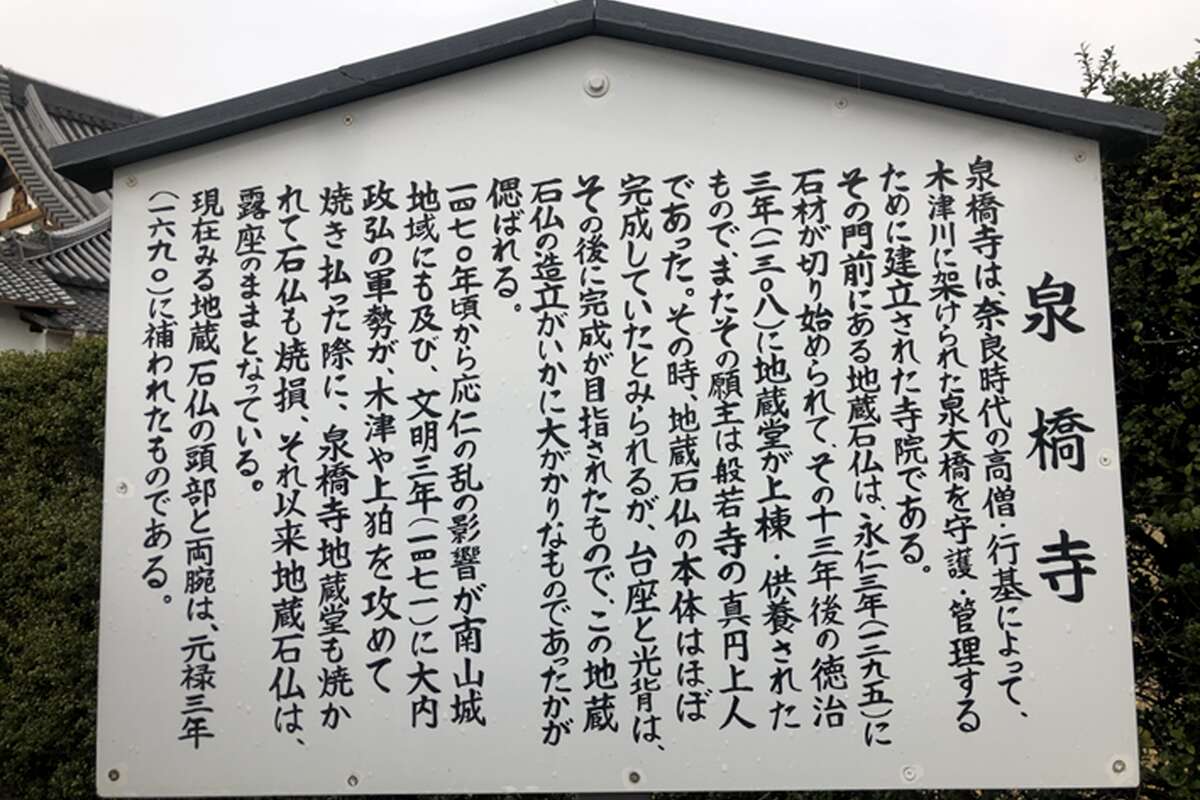 泉橋寺
泉橋寺は、奈良時代の高僧・行基によって、
木津川に架けられた泉大橋を守護・管理する
ために建立された寺院である。
その門前にある地蔵石仏は、永仁三年(一二九五)に
石材が切り始められて、その十三年後の徳治
三年(一三〇八)に地蔵堂が上棟・供養された
もので、またその願主は般若寺の真円上人
であった。その時、地蔵石仏の本体はほぼ
完成していたとみられるが、台座と光背は、
その後に完成が目指されたもので、この地蔵
石仏の造立がいかに大がかりなものであったかが
偲ばれる。
一四七〇年頃から応仁の乱の影響が南山城
地域にも及び、文明三年(一四七一)に大内
政弘の軍勢が、木津や上狛を攻めて
焼き払った際に、泉橋寺地蔵堂も焼か
れて石仏も焼損、それ以来地蔵石仏は、
露座のままとなっている。
現在みる地蔵石仏の頭部と両腕は、元禄三年
(一六九〇)に補われたものである。